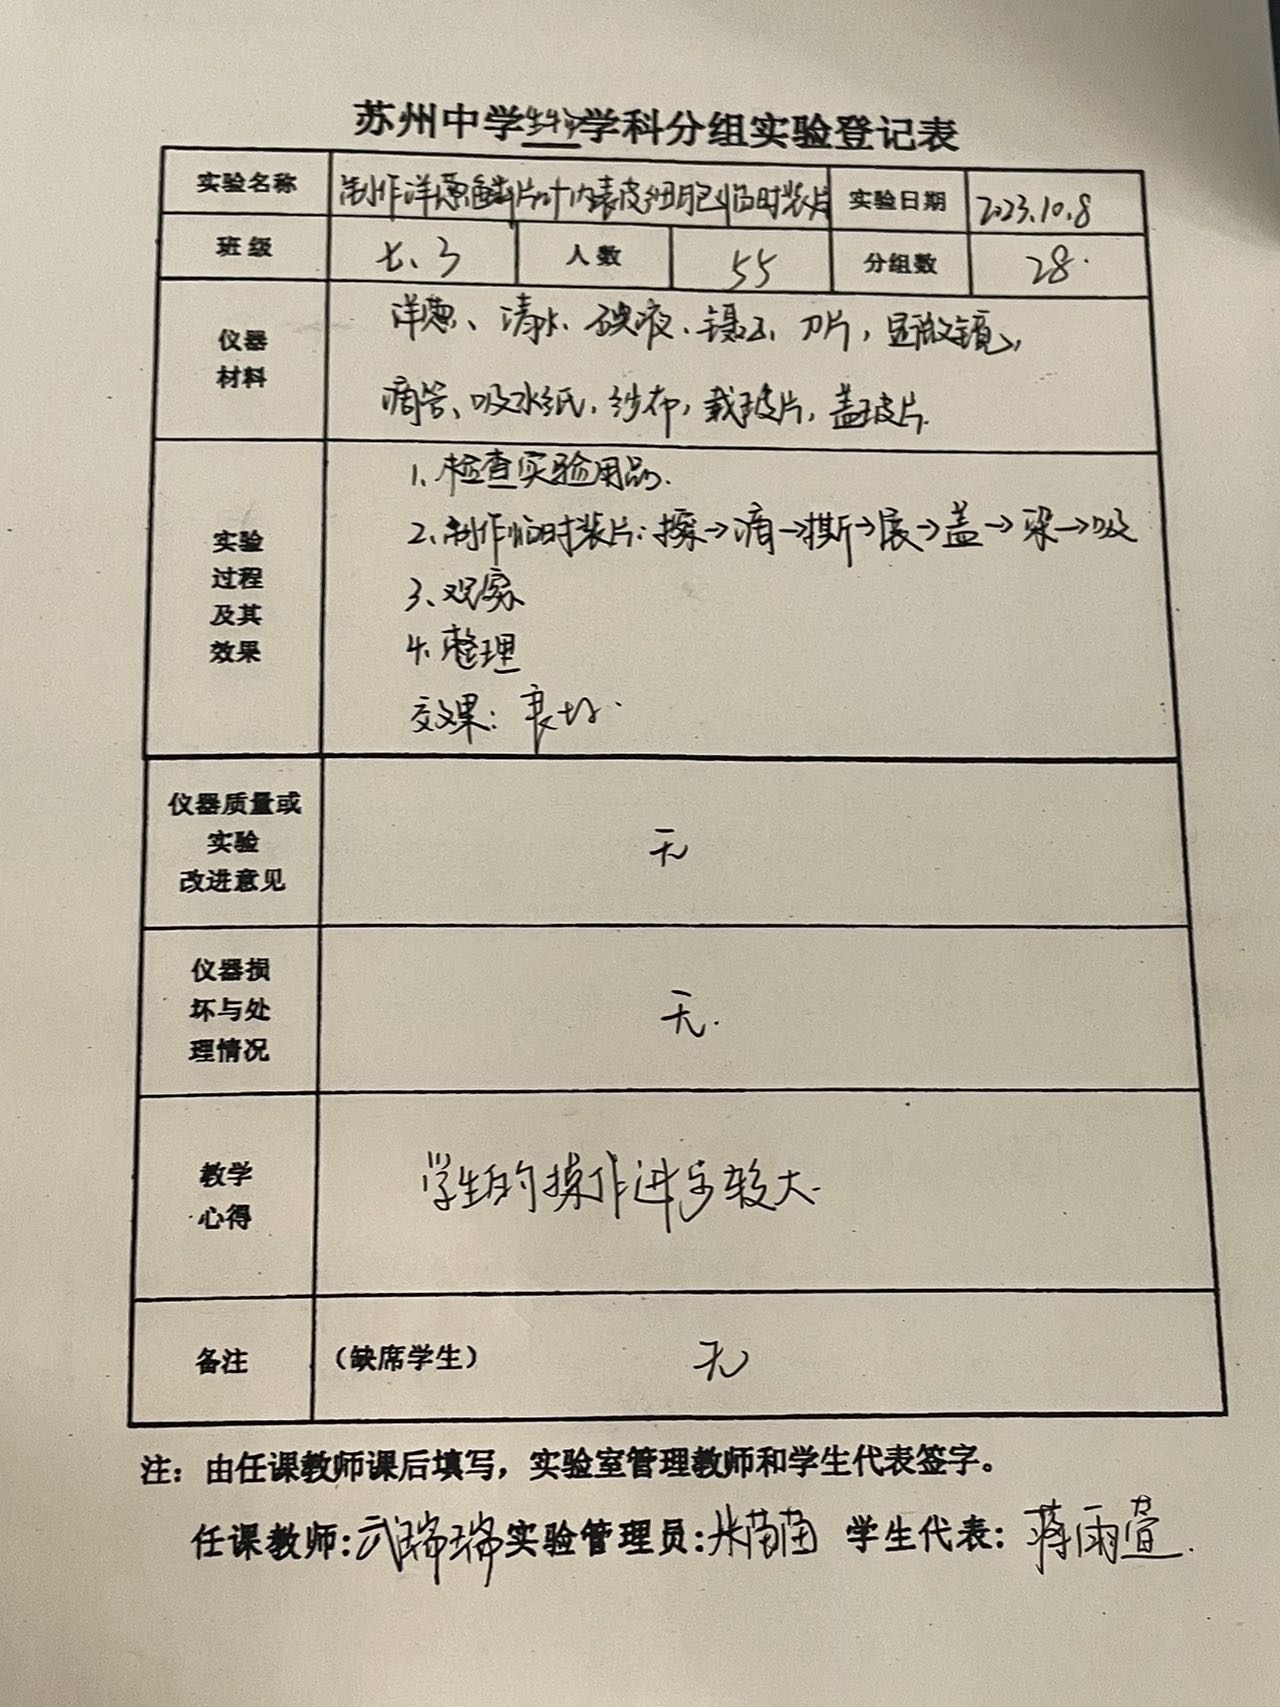 苏州中学生物学科分组实验登记表
实验名称 制作洋葱鳞片叶内表皮细胞临时装片 实验日期 2023.10.8
班级 七、3 人数 55 分组数 28.
仪器
材料
洋葱、清水、碘液、镊子、刀片，显微镜，
滴管、吸水纸，纱布，载玻片，盖玻片.
实验
过程
及其
效果
1、检查实验用品.
2、制作临时装片：擦→滴→撕→展→盖→染→吸
3、观察
4、整理
效果：良好.
仪器质量或
实验
改进意见
无
仪器损
坏与处
理情况
无.
教学
心得
学生的操作进步较大.
备注 （缺席学生） 无
注：由任课教师课后填写，实验室管理教师和学生代表签字。
任课教师:武瑞瑞 实验管理员:米苗苗 学生代表: 蒋雨萱.